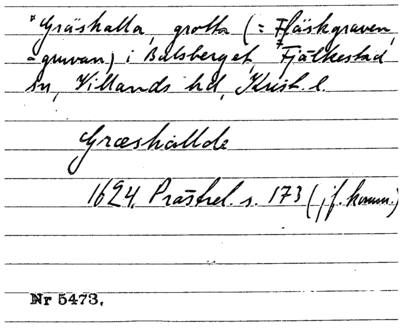 *Gräshalla, grotta (= Fläskgraven,
-gruvan) i Balsberget, Fjälkestad
sn, Villands hd, Krist. l.
Græshallde
1624. Prästrel. s. 173 (jf. komm.)
Nr 5473.